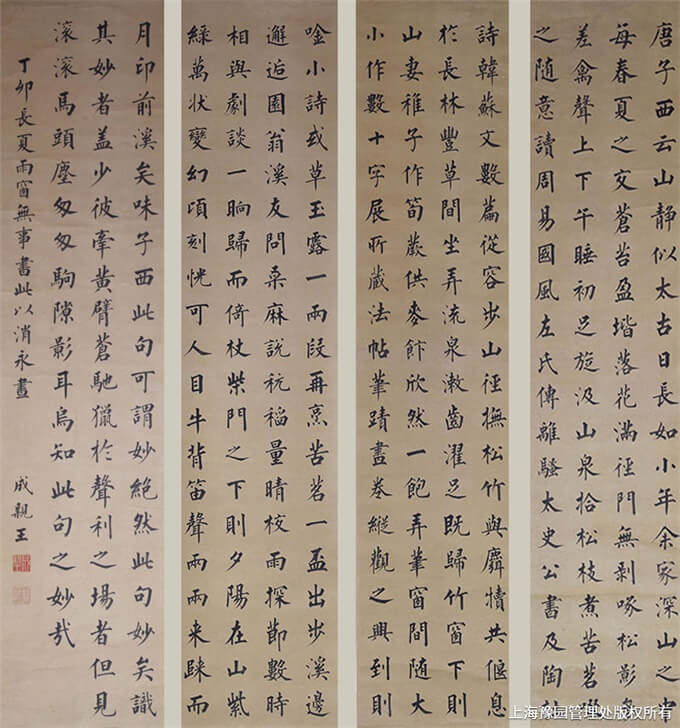 唐子西云山靜似太古日長如小年余家深山之中
每春夏之交蒼苔盈堦落花滿徑門無剝啄松影
差禽聲上下午睡初足旋汲山泉拾松枝煮苦茗
之随意讀周易國風左氏傳離騷太史公書及陶
詩韓蘇文數篇從容步山徑撫松竹與麛犢共偃息
於長林豐草間坐弄流泉漱齒濯足既歸竹窗下則
山妻稚子作筍蕨供麥飰欣然一飽弄筆窗間随大
小作數十字展所藏法帖筆蹟畫卷縱觀之興到則
唫小詩或草玉露一兩段再烹苦茗一盃出步溪邊
邂逅園翁溪友問桒麻說秔稻量晴校雨探節數時
相與劇談一晌歸而倚杖柴門之下則夕陽在山紫
綠萬狀變幻頃刻恍可人目牛背笛聲兩兩来歸而
月印前溪矣味子西此句可謂妙絕然此句妙矣識
其妙者盖少彼牽黃臂蒼馳獵於聲利之場者但見
滾滾馬頭塵匆匆駒隙影耳烏知此句之妙哉
丁卯長夏雨窗無事書此以消永晝
成親王
上海豫园管理处版权所有